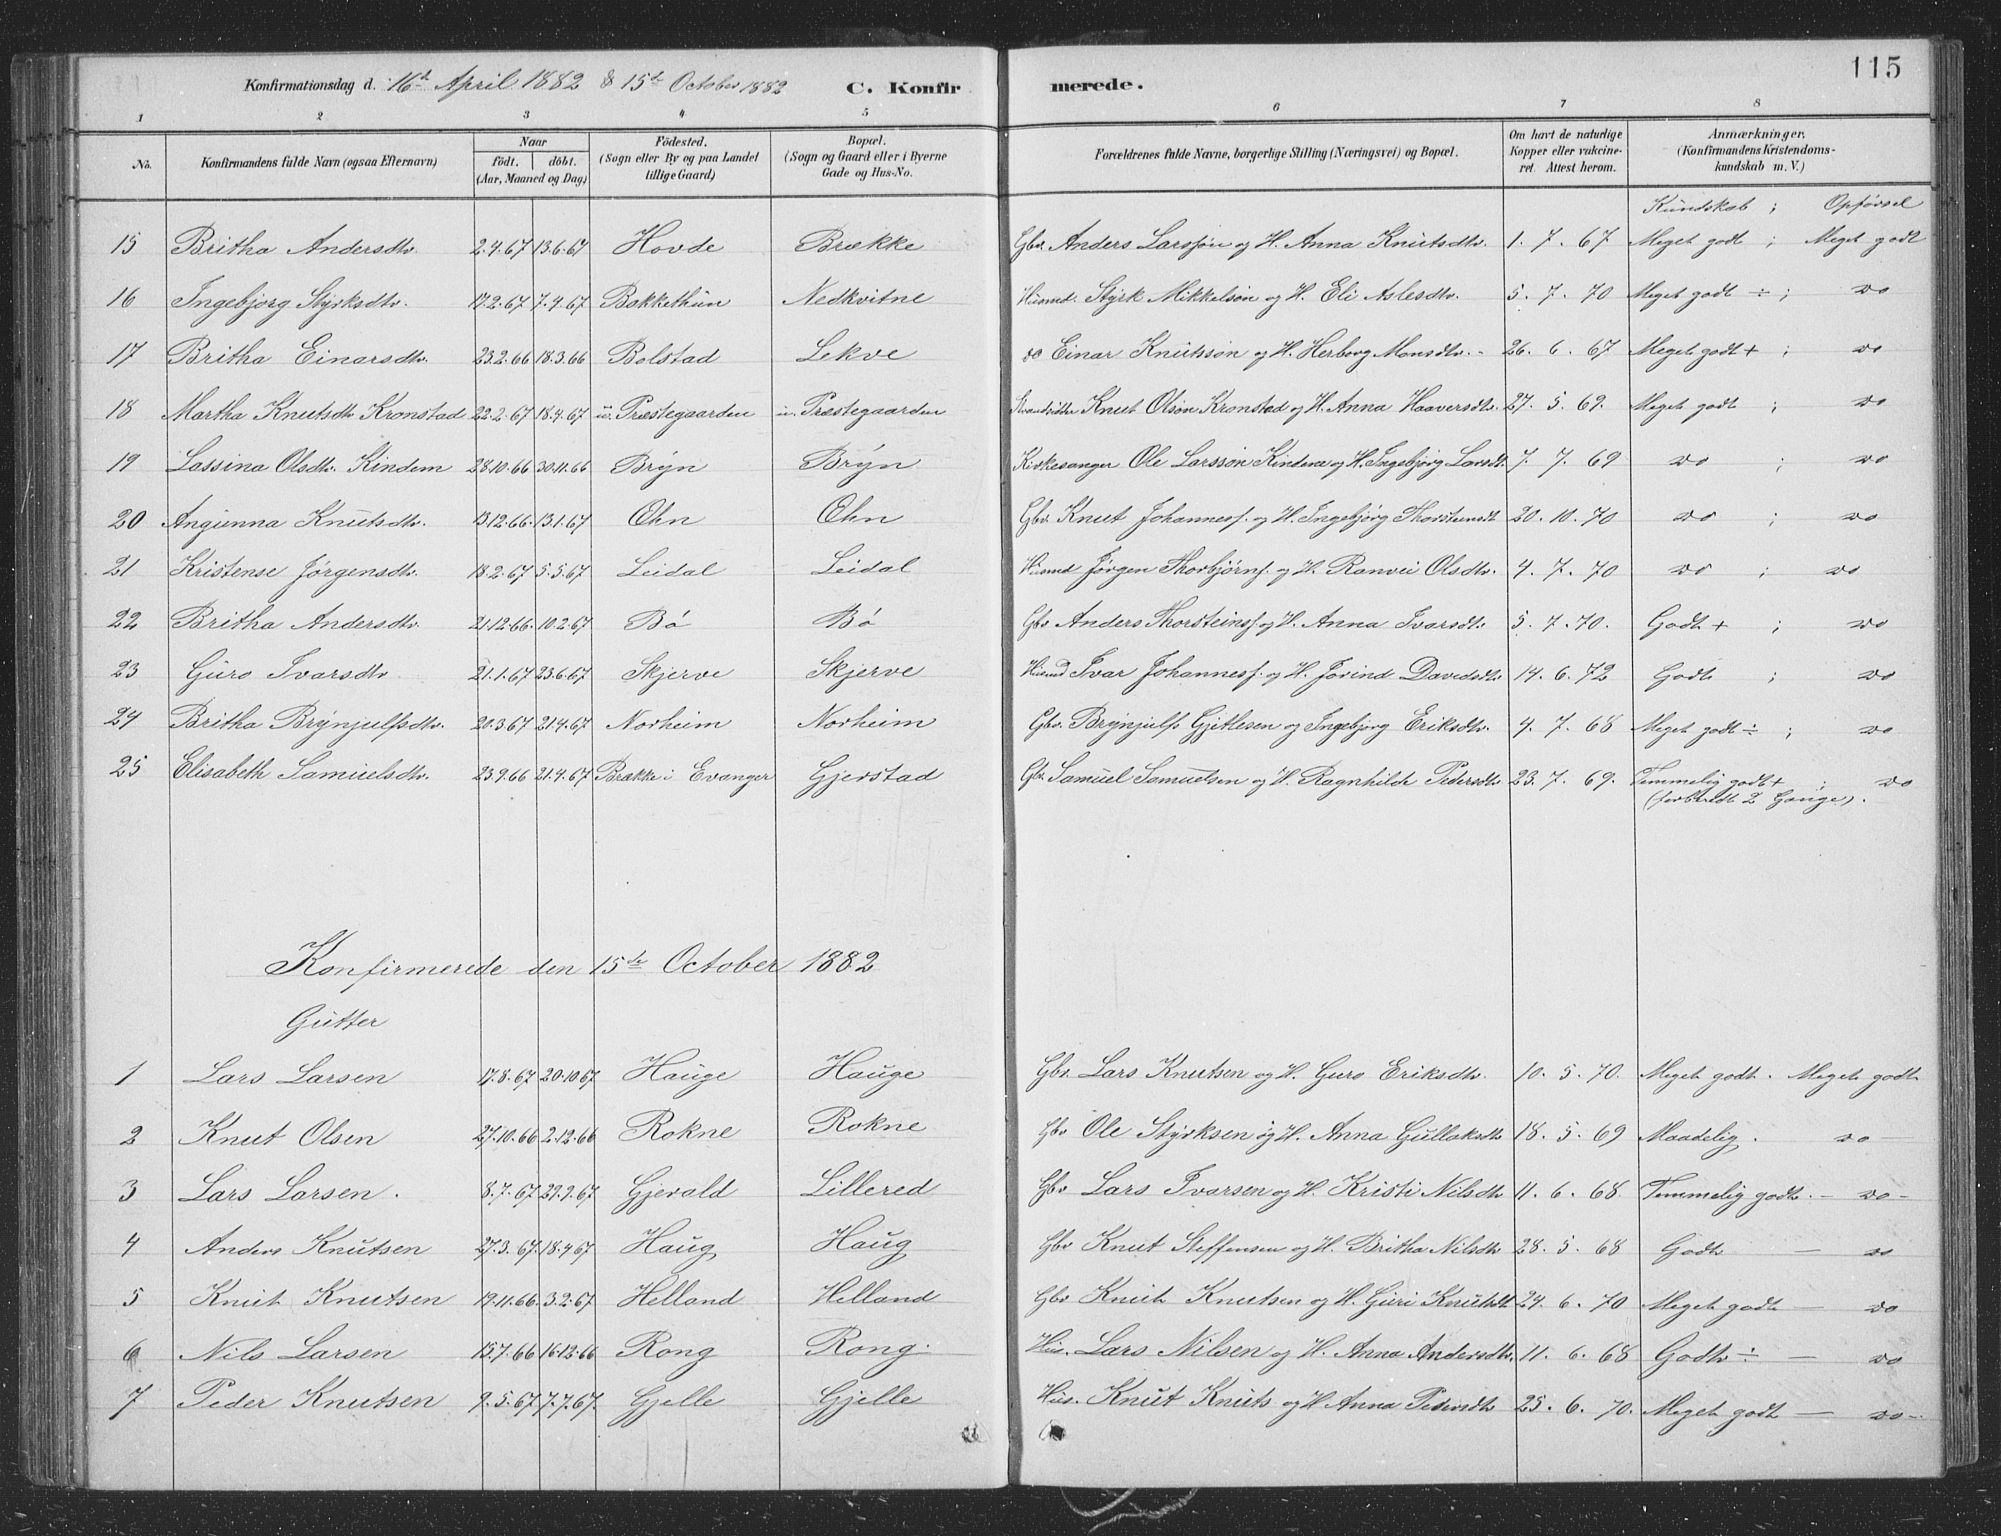 115
Konfirmationsdag d. 16de April 1882 & 15de October 1882 C. Konfirmerede.
1 2 3 4 5 6 7 8
No. Konfirmandens fulde Navn (ogsaa Efternavn) Naar födt. döbt. (Aar, Maaned og Dag) Födested. (Sogn eller By og paa Landet tillige Gaard) Bopæl. (Sogn og Gaard eller i Byerne Gade og Hus-No. Forældrenes fulde Navne, borgerlige Stilling (Næringsvei) og Bopæl. Om havt de naturlige Kopper eller vakcineret Attest herom. Anmærkninger. (Konfirmandens Kristendomskundskab m. V.)
Kundskab ; Opførsel
15 Britha Andersdtr. 2.4.67 13.6.67 Hovde Brække Gbr. Anders Larssøn og H. Anna Knutsdtr. 1. 7. 67 Meget godt ; Meget godt
16 Ingebjørg Styrksdtr. 17.2.67 7.4.67 Bakkethun Nedkvitne Husmd. Styrk Mikkelsøn og H. Eli Aslesdtr. 5. 7. 70 Meget godt ÷ ; do
17 Britha Einarsdtr. 23.2.66 18.3.66 Bolstad Lekve do Einar Knutssøn og H. Herborg Monsdtr. - 26. 6. 67 Meget godt + ; do
18 Martha Knutsdtr Kronstad 22.2.67 18.4.67 u. Præstegaarden u. Præstegaarden Knut Olsøn Kronstad og H. Anna Haaversdtr. 27. 5. 69. Meget godt ; do
19 Lassina Olsdtr. Kindem 28.10.66 30.11.66 Bryn Bryn Kirkesanger Ole Larssøn Kindem og H. Ingebjørg Larsdt. 7. 7. 69 do ; do
20 Angunna Knutsdtr. 13.12.66. 13.1.67 Øhn Øhn Gbr. Knut Johannesf. og H. Ingebjørg Thorsteinsdt 20. 10. 70 do ; do
21 Kristense Jørgensdtr. 18.2.67 5.5.67 Leidal Leidal Husmd Jørgen Thorbjørnf. og H. Ranvei Olsdtr. 4. 7. 70 do ; do
22 Britha Andersdtr. 21.12.66. 10.2.67 Bø Bø Gbr Anders Thorsteinsf. og H. Anna Ivarsdtr. 5. 7. 70. Godt + ; do
23 Guro Ivarsdtr. 21.1.67 23.6.67 Skjerve Skjerve Husmd Ivar Johannesf. og H. Jorind Davidsdtr 14. 6. 72 Godt ; do
24 Britha Brynjulfsdtr. 20.3.67 21.4.67 Norheim Norheim Gbr. Brynjulf Gjetlesen og Ingebjørg Eriksdtr. 4. 7. 68 Meget godt ÷ ; do
25 Elisabeth Samuelsdtr. 23.9.66 21.4.67 Brække i Evanger Gjerstad Gbr. Samuel Samuelsen og H. Ragnhilde Pedersdtr 23. 7. 69. Temmelig godt + ; do
(forberedt 2 Gange).
Konfirmerede den 15de October 1882
Gutter
1 Lars Larsen 17.8.67 20.10.67 Hauge Hauge Gbr. Lars Knutsen og H. Guro Eriksdtr. 10. 5. 70. Meget godt. Meget godt
2 Knut Olsen 27.10.66 2.12.66 Rokne Rokne Gbr Ole Styrksen og H. Anna Gullaksdtr 18. 5. 69 Maadelig. do -
3 Lars Larsen. 8.7.67 29.9.67. Gjerald Lillered Gbr Lars Ivarsen og H. Kristi Nilsdtr 11. 6. 68 Temmelig godt. - do -
4 Anders Knutsen 27.3.67. 18.4.67 Haug Haug Gbr Knut Steffensen og H. Britha Nilsdtr 28. 5. 68 Godt - do
5 Knut Knutsen 19.11.66. 3.2.67 Helland Helland Gbr Knut Knutsen og H. Guri Knutsdt 24. 6. 70 Meget godt - do
6 Nils Larsen 15.7.66 16.12.66 Rong Rong. Hus. Lars Nilsen og H. Anna Andersdtr. 11. 6. 68 Godt ÷ - do
7 Peder Knutsen 9.5.67 7.7.67. Gjelle Gjelle Hus. Knut Knuts og H Anna Pedersdtr 25. 6. 70. Meget godt - do -